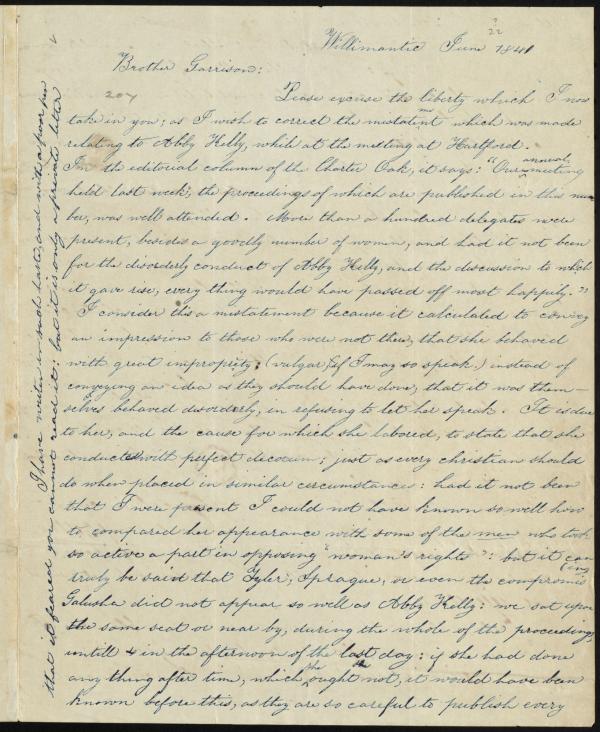 22
Willimantic June 1841
Brother Garrison:
204
Please excuse the liberty which I now
take in you; as I wish to correct the mistatment which was made
relating to Abby Kelly, while at the meeting at Hartford.
In the editorial column of the Charter Oak, it says: "Our annual meeting
held last week, the proceedings of which are published in this num
ber, was well attended. More than a hundred delegates were
present, besides a goodly number of women, and had it not been
for the disorderly conduct of Abby Kelly, and the discussion to which
it gave rise, every thing would have passed off most happily."
I consider this a mistatement because it calculated to convey
an impression to those who were not there, that she behaved
with great impropiety; (vulgar, if I may so speak,) instead of
conveying an idea as they should have done, that it was them-
selves behaved disorderly, in refusing to let her speak. It is due
to her, and the cause for which she labored, to state that she
conducted with perfect decorum; just as every christian should
do when placed in similar circumstances: had it not been
that I were present I could not have known so well how
to compared her appearance with some of the men who took
so active a part in opposing "woman's rights": but it can
truly be said that Tyler, Sprague, or even the compromising
Galusha did not appear so well as Abby Kelly: we sat upon
the same seat or near by, during the whole of the proceedings,
untill 4 in the afternoon of the last day: if she had done
any thing after time, which she ought not, it would have been
known before this, as they are so careful to publish every
I have writen in such haste, and with a poor pen
that it feared you cannot read it: but it is only a private letter